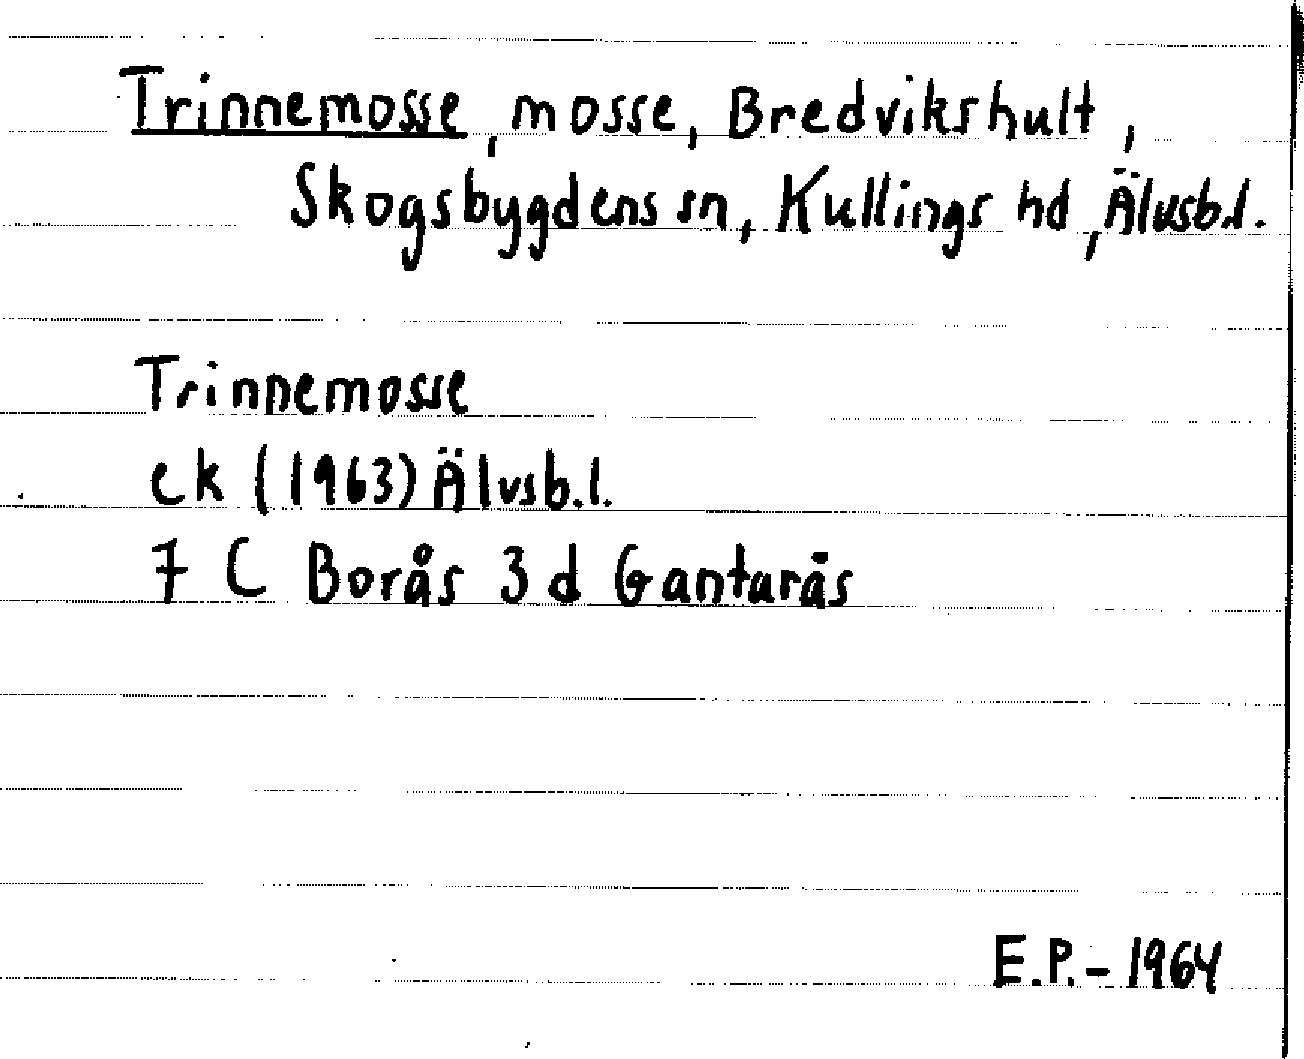 Trinnemosse, mosse, Bredvikshult,
Skogsbygdens sn, Kullings hd, Älvsb.l.
Trinnemosse
ek (1963) Älvsb.l.
7 C Borås 3 d Gantarås
E.P. - 1964